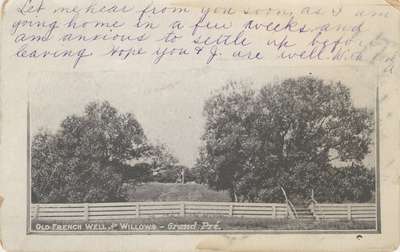 Let me hear from you soon as I am
going home in a few weeks and
am anxious to settle up before
leaving hope you & J. are well with
OLD FRENCH WELL AND WILLOWS - Grand Pré.